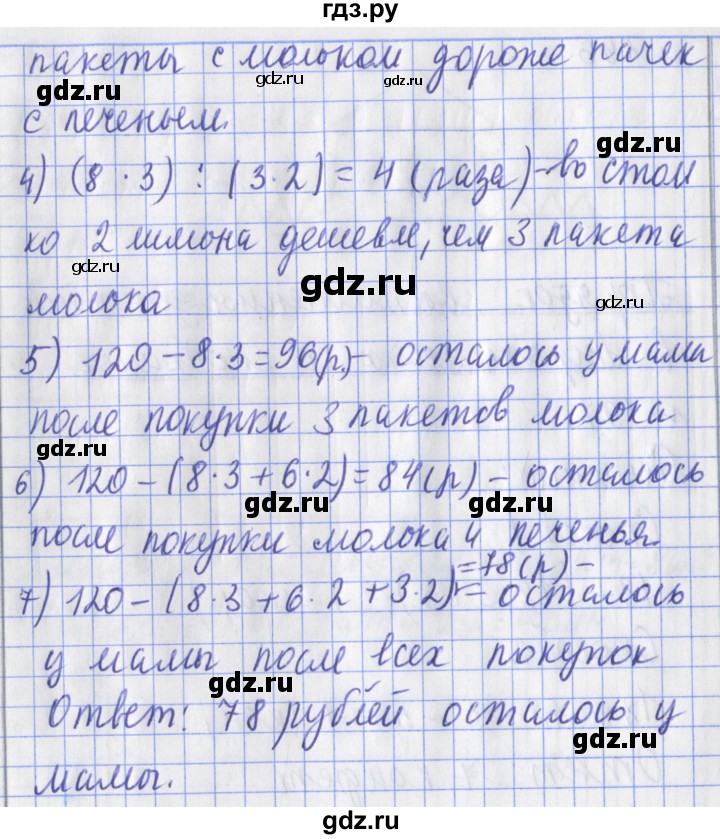 гдз.ру
пакеты с мольком дороже пачек
gdz.ru gdz.ru gdz.ru
с печеньем.
gdz.ru
4) (8 · 3) : (3·2) = 4 (раза) - во стол
ко 2 лимона дешевле, чем 3 пакета
gdz.ru gdz.ru gdz.ru
молока
5) 120 - 8·3 = 96(р) - осталось у мама
после покупки 3 пакетов молока
gdz.ru gdz.ru
6) 120 - (8·3 + 6·2) = 84(р) - осталось
gdz.ru gdz.ru
после покупки молока и печенья.
=78(р) -
7) 120 - (8·3 + 6·2 + 3·2) = осталось
gdz.ru gdz.ru
у мамы после всех покупок
gdz.ru
Ответ: 78 рублей осталось у
gdz.ru
мамы.
gdz.ru